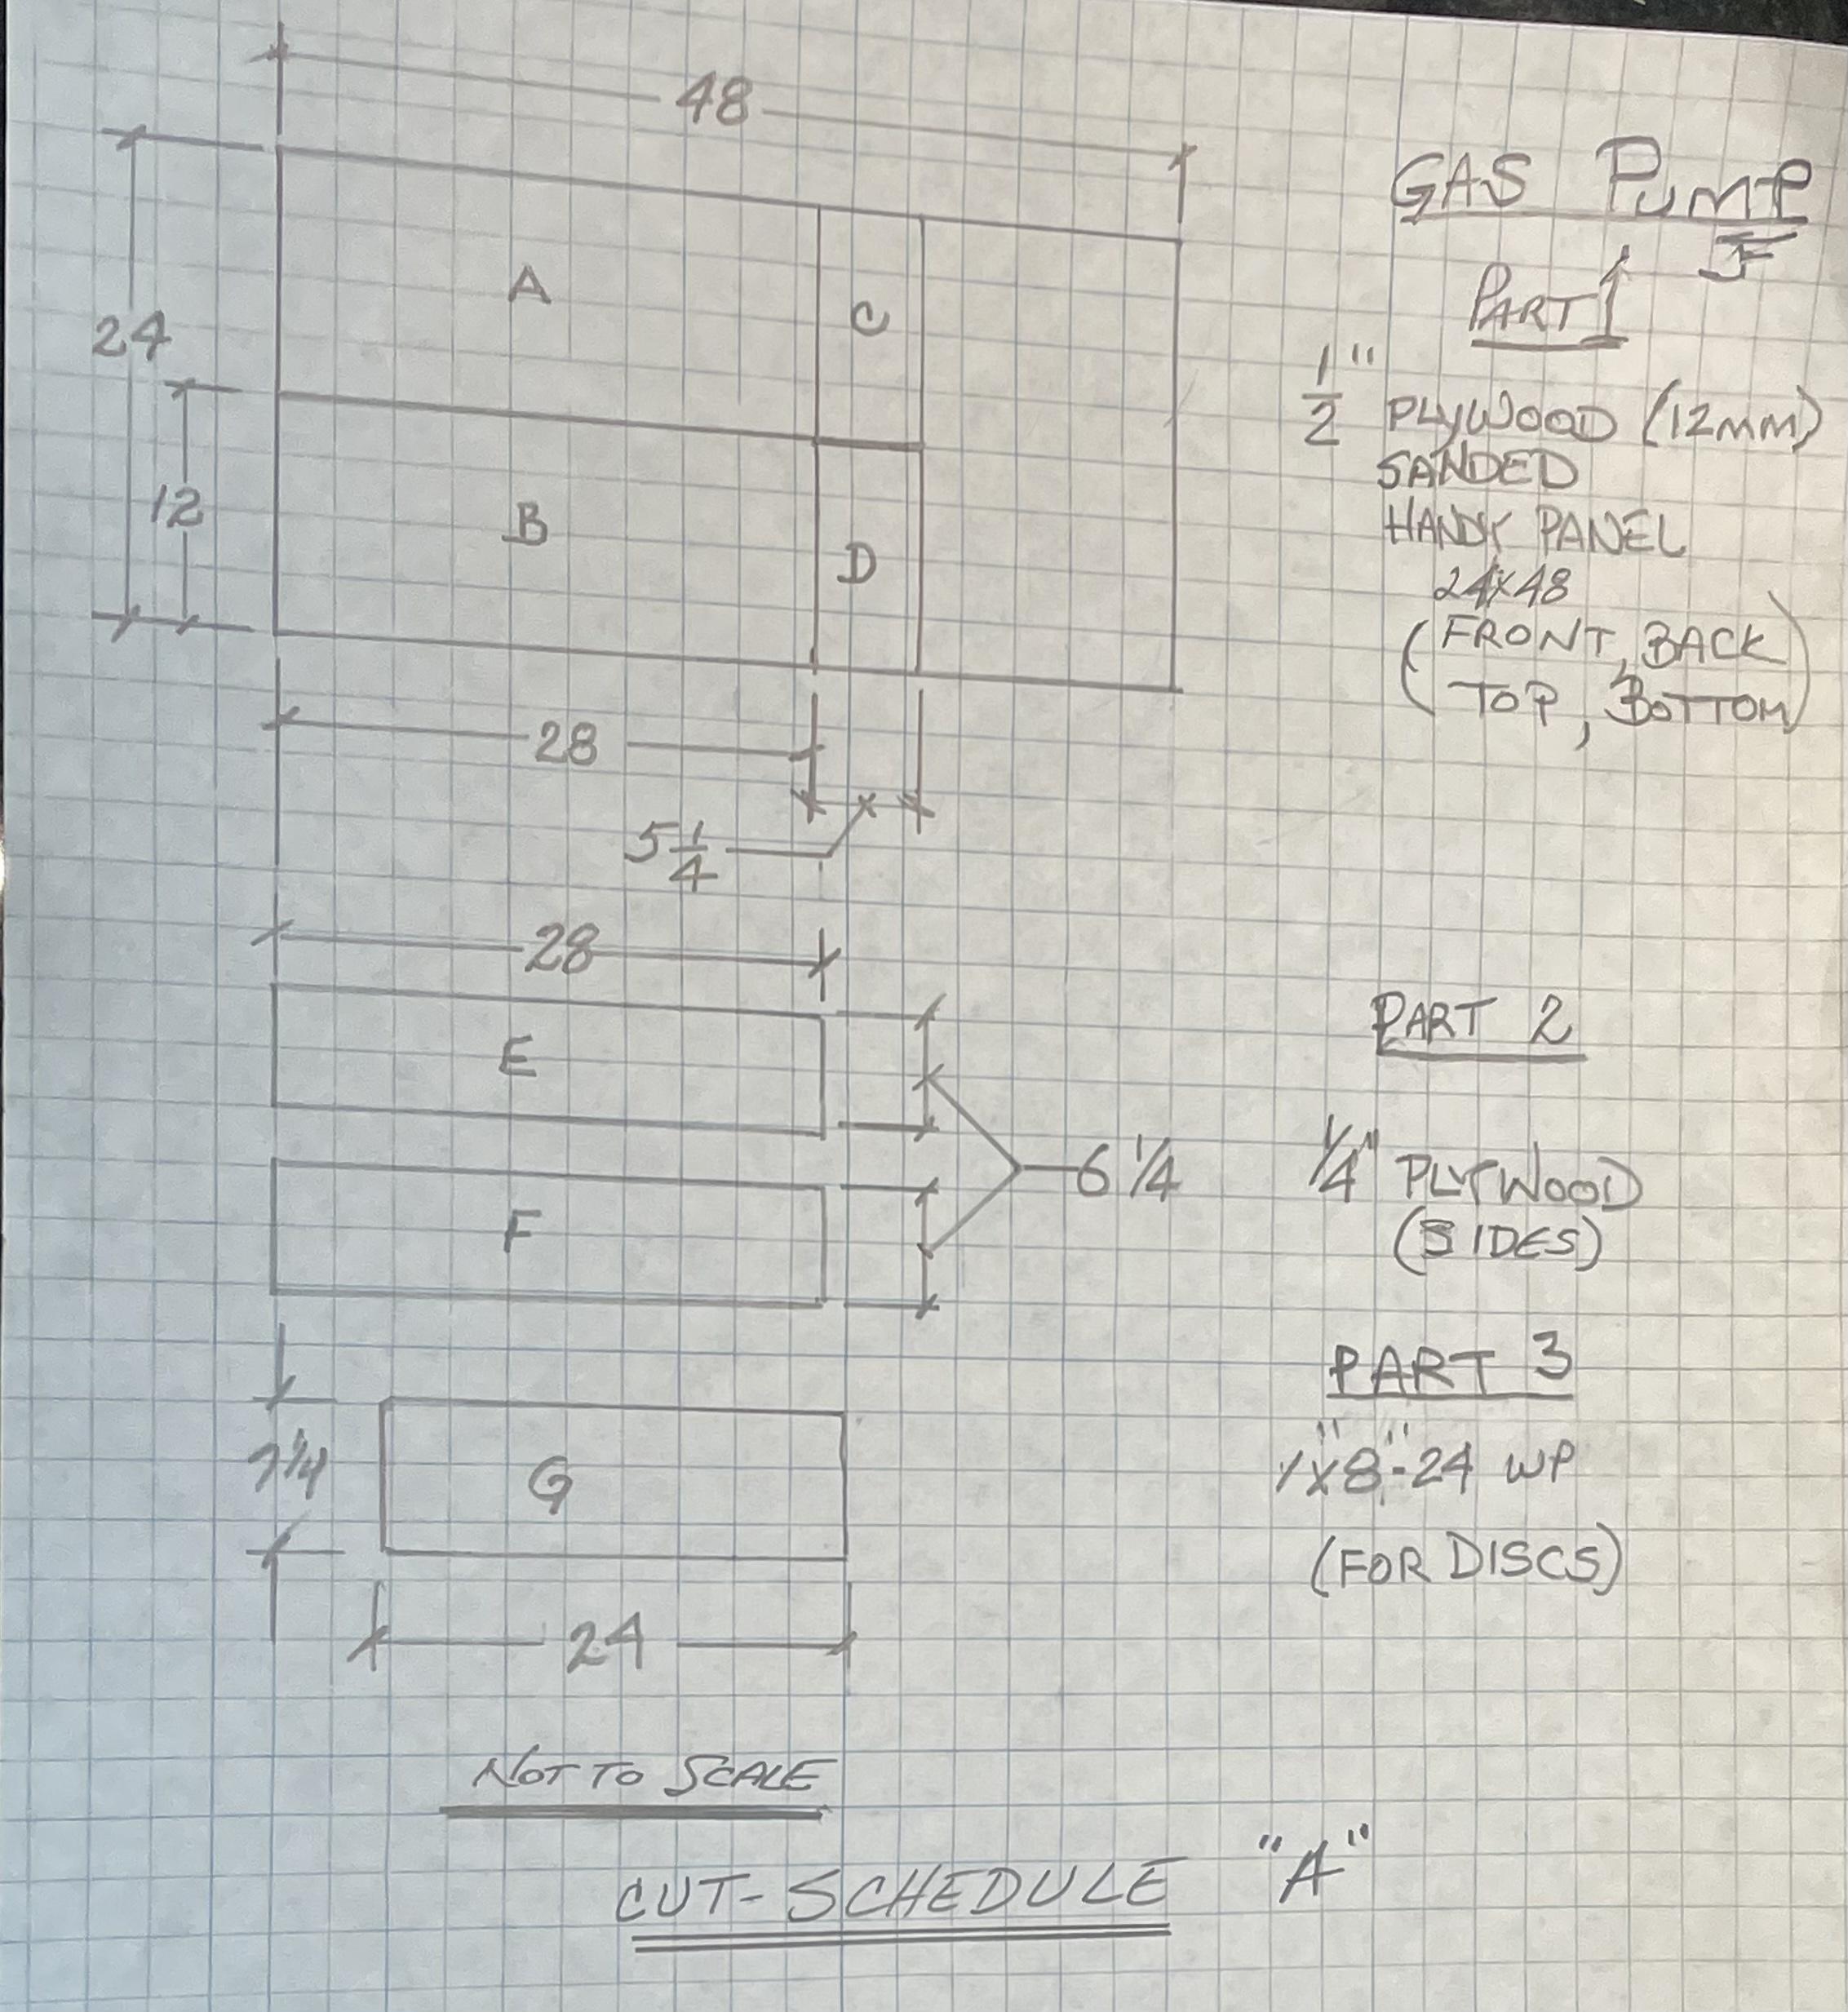 48
GAS PUMP
PART 1
A
C
24
1/2" PLYWOOD (12MM)
SANDED
HANDY PANEL
24x48
(FRONT, BACK
TOP, BOTTOM)
12
B
D
28
5 1/4
28
E
PART 2
6 1/4
1/4" PLYWOOD
(SIDES)
F
PART 3
7 1/4
G
1"x8"-24 WP
(FOR DISCS)
24
NOT TO SCALE
CUT-SCHEDULE "A"